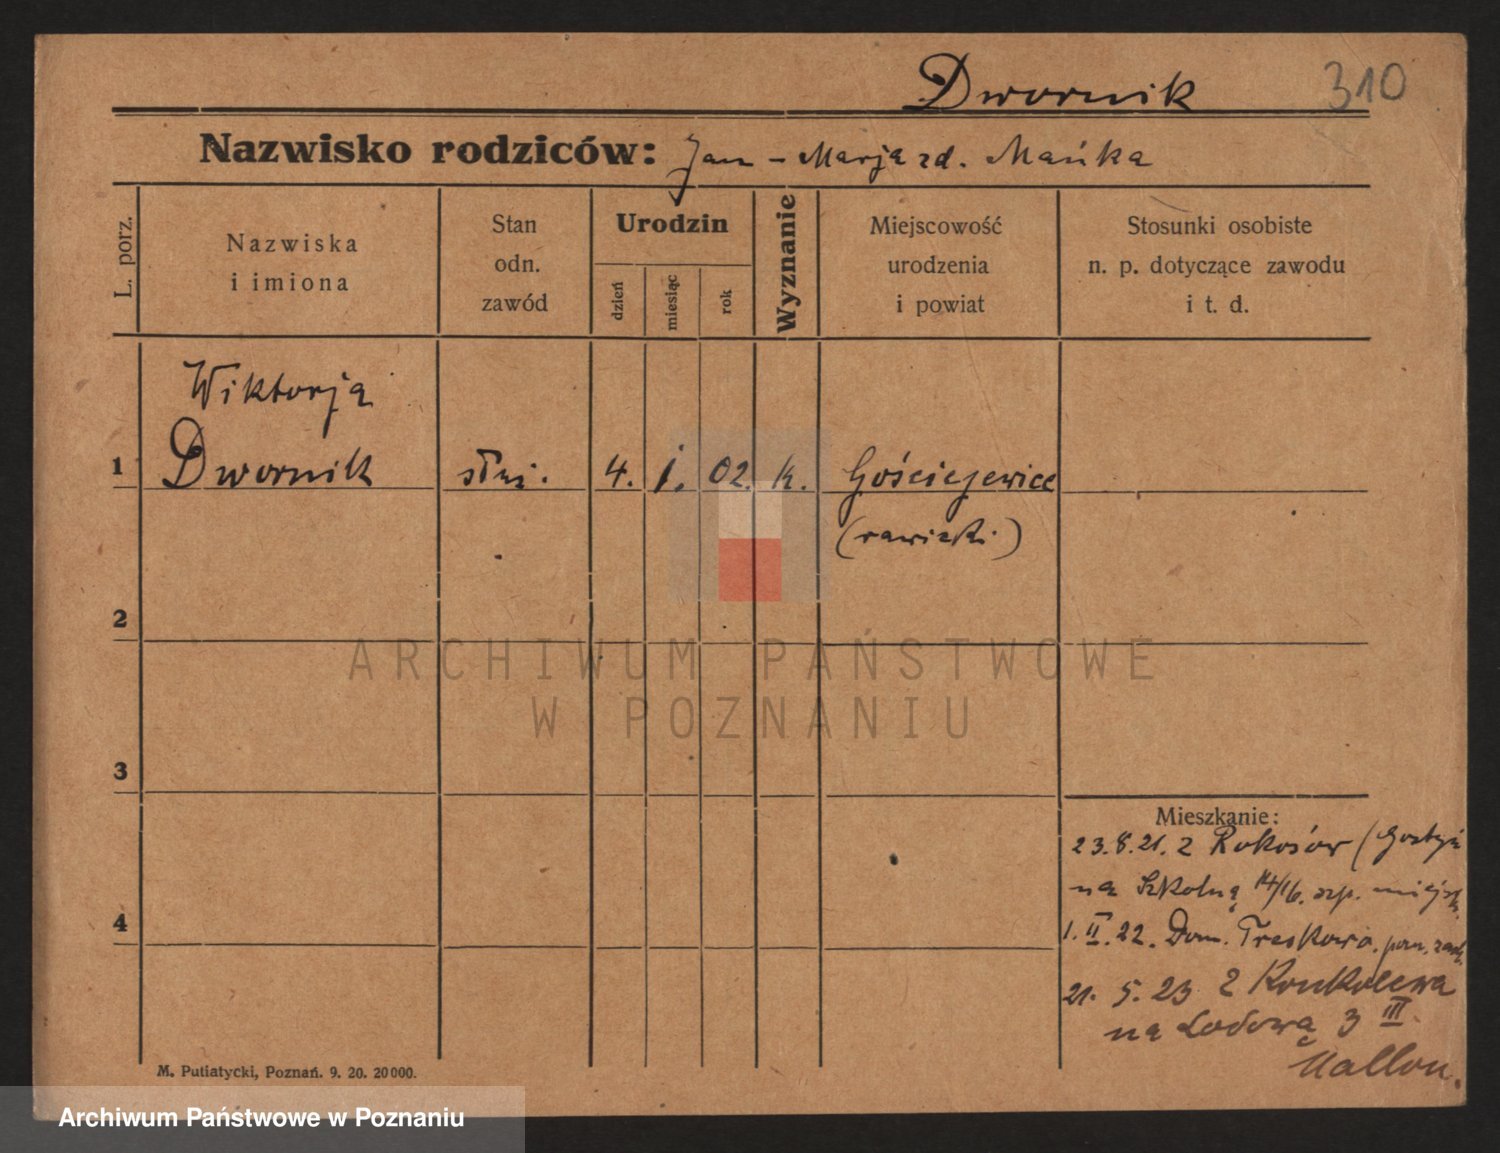 Dwornik 310
Nazwisko rodziców: Jan - Marja zd. Mańka
L. porz.
Nazwiska
i imiona
Stan
odn.
zawód
Urodzin
dzień
miesiąc
rok
Wyznanie
Miejscowość
urodzenia
i powiat
Stosunki osobiste
n. p. dotyczące zawodu
i t. d.
Wiktorja
1 Dwornik służ. 4. 1. 02. k. Gościejewice
(rawicki)
2
3
4
Mieszkanie:
23.8.21. z Rokosów (Gostyń
na Szkolną 14/16. szp. miejsk.
1. II. 22. Dom. Treskowa.
21. 5. 23 z Konkolewa
na Lodową 3 III.
Mallon.
M. Putiatycki, Poznań. 9. 20. 20000.
ARCHIWUM PAŃSTWOWE
W POZNANIU
Archiwum Państwowe w Poznaniu